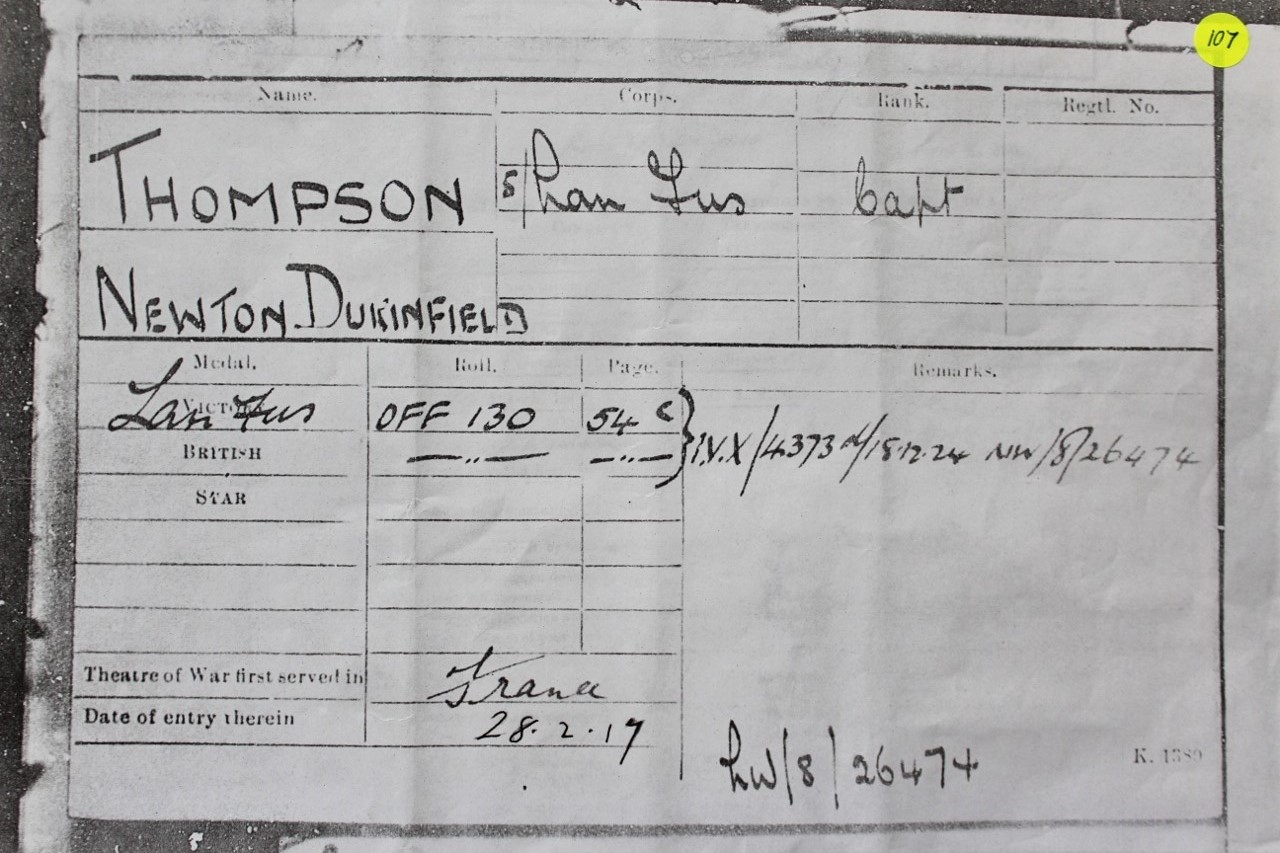 107
Name. Corps. Rank. Regtl. No.
THOMPSON 5/Lan Fus Capt
NEWTON DUKINFIELD
Medal. Roll. Page. Remarks.
VICTORY Lan Fus OFF 130 54 c
BRITISH —〃— —〃— I.V.X/4373 d/18.12.24 NW/8/26474
STAR
Theatre of War first served in France
Date of entry therein 28.2.17
NW/8/26474
K. 1380